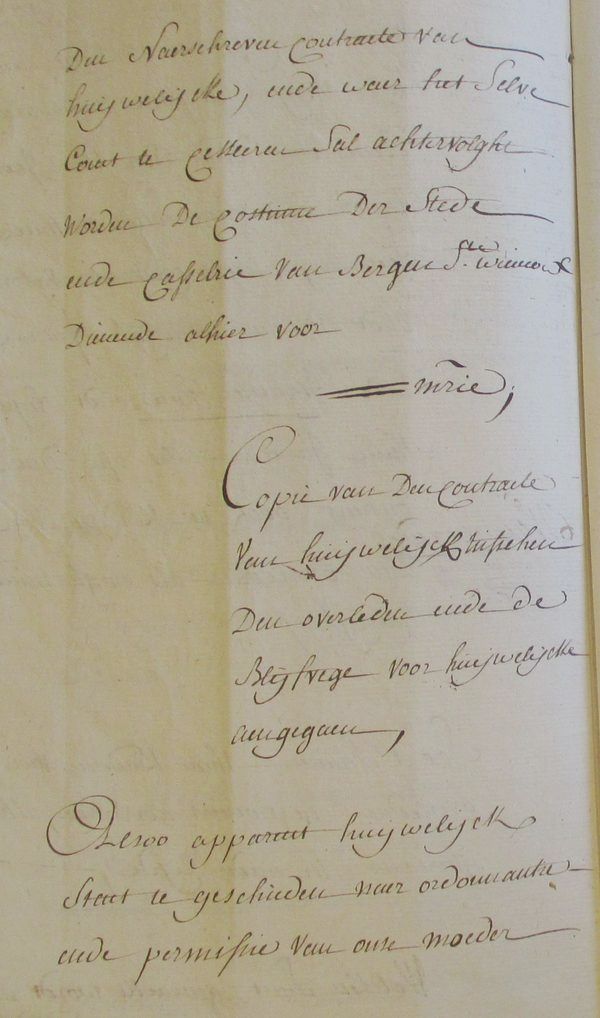 Den Naerschreven Contracte van
huijwelijcke, ende waer het Selve
Comt te Cesseren Sal achtervolght
Worden De Costume Der Stede
ende Casselrie Van Bergen Ste. Winnox
Dienende alhier voor
mrie,
Copie van Den Contracte
Van huijwelijck tusschen
Den overleden ende de
Blijfvege voor huijwelijcke
aengegaen,
Alsoo apparent huijwelijck
Staet te geschieden naer ordonnantie
ende permissie Van onse moeder